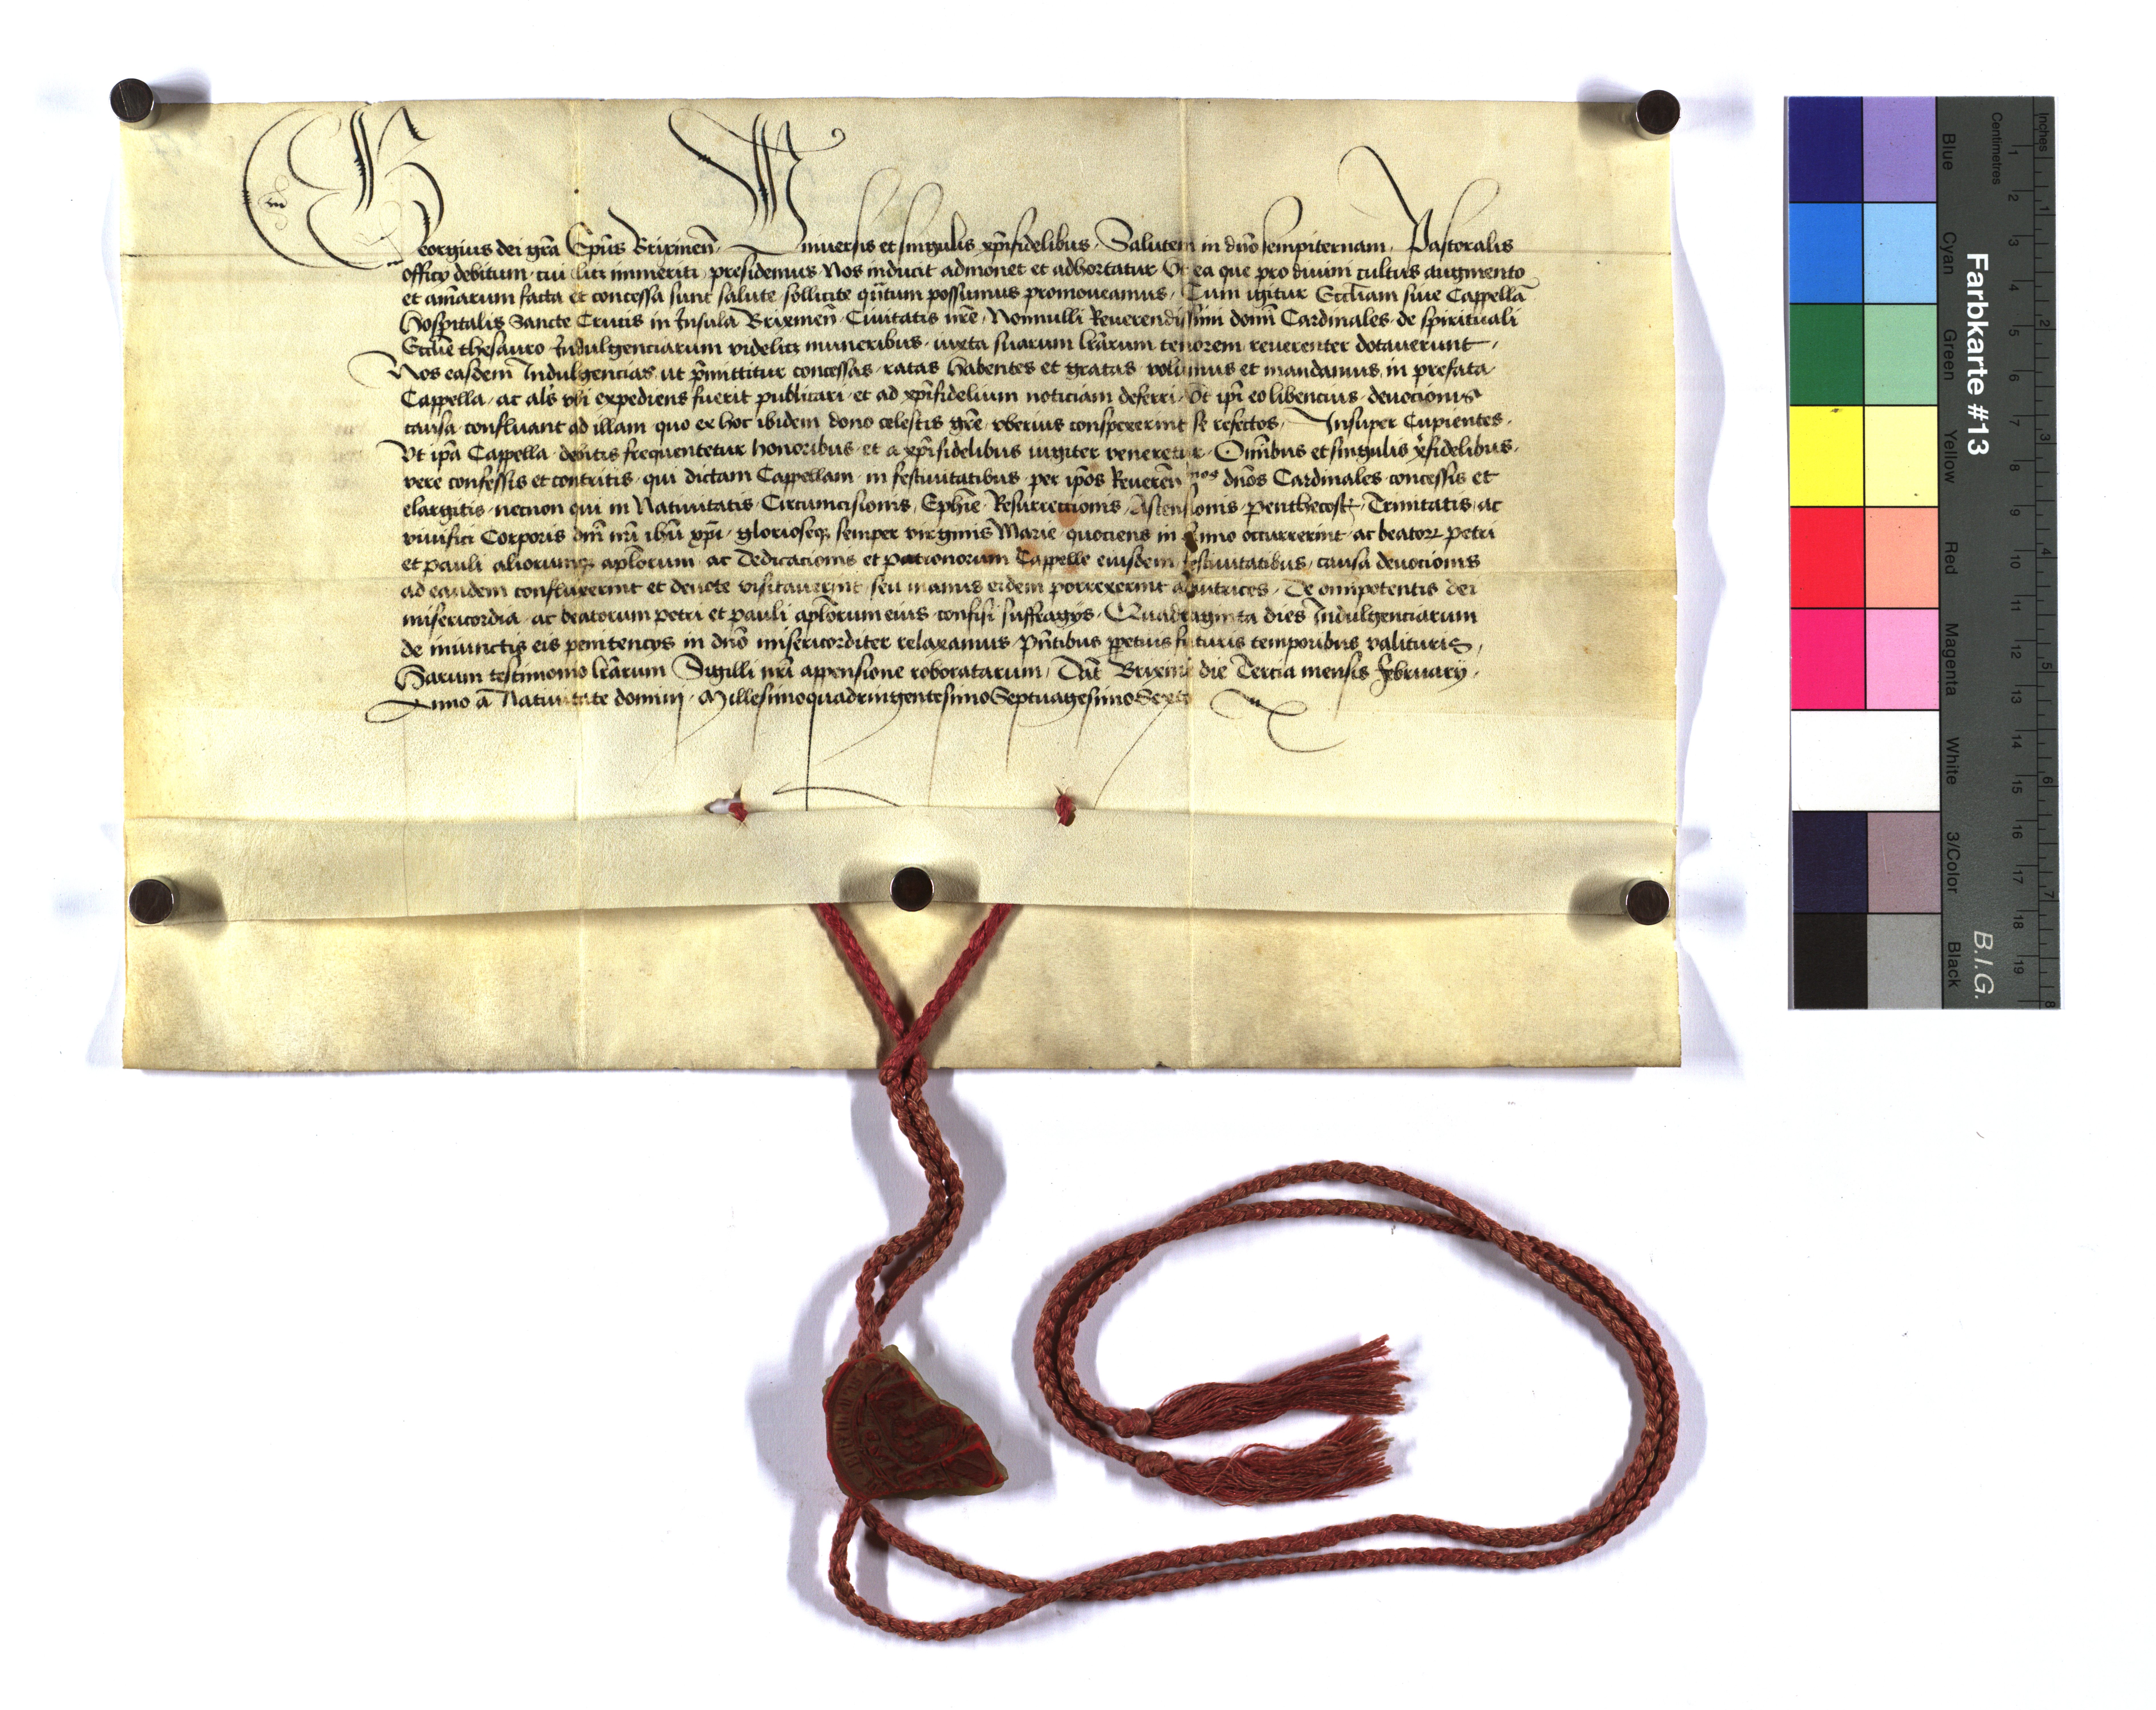 Georgius dei gr̃a Ep̃us Brixineñ. Vniuersis et singulis xp̃ifidelibus. Salutem in dño sempiternam. Pastoralis
officij debitum cui licet immeriti presidemus Nos inducit admonet et adhortatur Vt ea que pro diuini cultus augmento
et aĩarum facta et concessa sunt salute sollicite qñtum possumus promoueamus. Cum igitur Eccl̃iam siue Cappellã
hospitalis Sancte Crucis in Insula Brixineñ Ciuitatis nr̃e, Nonnulli Reuerendissimi domĩ Cardinales de spirituali
Eccl̃ie thesauro Indulgenciarum videlicet muneribus iuxta suarum lr̃arum tenorem reuerenter dotauerunt,
Nos easdem Indulgencias ut p̃mittitur concessas ratas habentes et gratas volumus et mandamus in prefata
Cappella ac al̃s vbi expediens fuerit publicari et ad xp̃ifidelium noticiam deferri. Vt ip̃i eo libencius deuocionis
causa confluant ad illam quo ex hoc ibidem dono celestis gr̃e vberius conspexerint se refectos, Insuper Cupientes.
Vt ip̃a Cappella debitis frequentetur honoribus et a xp̃ifidelibus iugiter veneretur. Om̃ibus et singulis xp̃ifidelibus.
vere confessis et contritis qui dictam Cappellam in festiuitatibus per ip̃os Reuereñ mos dños Cardinales concessis et
elargitis necnon qui in Natiuitatis Circumcisionis, Ephĩe Resurrectionis Ascensionis Penthecost̃ Trinitatis ac
viuifici Corporis dñi nr̃i ihũ xp̃i glorioseq̃ semper virginis Marie quociens in Anno occurrerint ac beatoꝝ petri
et pauli aliorumq̃ ap̃lorum ac Dedicacionis et patronorum Cappelle eiusdem festiuitatibus, causa deuocionis
ad eandem confluxerint et deuote visitauerint seu manus eidem porrexerint adiutrices, De om̃ipotentis dei
misericordia ac beatorum petri et pauli ap̃lorum eius confisi suffragijs. Quadraginta dies Indulgenciarum
de iniunctis eis penitencijs in dño misericorditer relaxamus p̃ntibus ꝑpetuis futuris temporibus valituris,
Harum testimonio lr̃arum Sigilli nr̃i appensione roboratarum, Dat̃ Brixine die Tercia mensis february,
Anno ã Natiuitate domini. MillesimoquadringentesimoSeptuagesimoSexto
Farbkarte #13
B.I.G.
Inches
Centimetres
Blue
Cyan
Green
Yellow
Red
Magenta
White
3/Color
Black
1 2 3 4 5 6 7 8 9 10 11 12 13 14 15 16 17 18 19
1 2 3 4 5 6 7 8